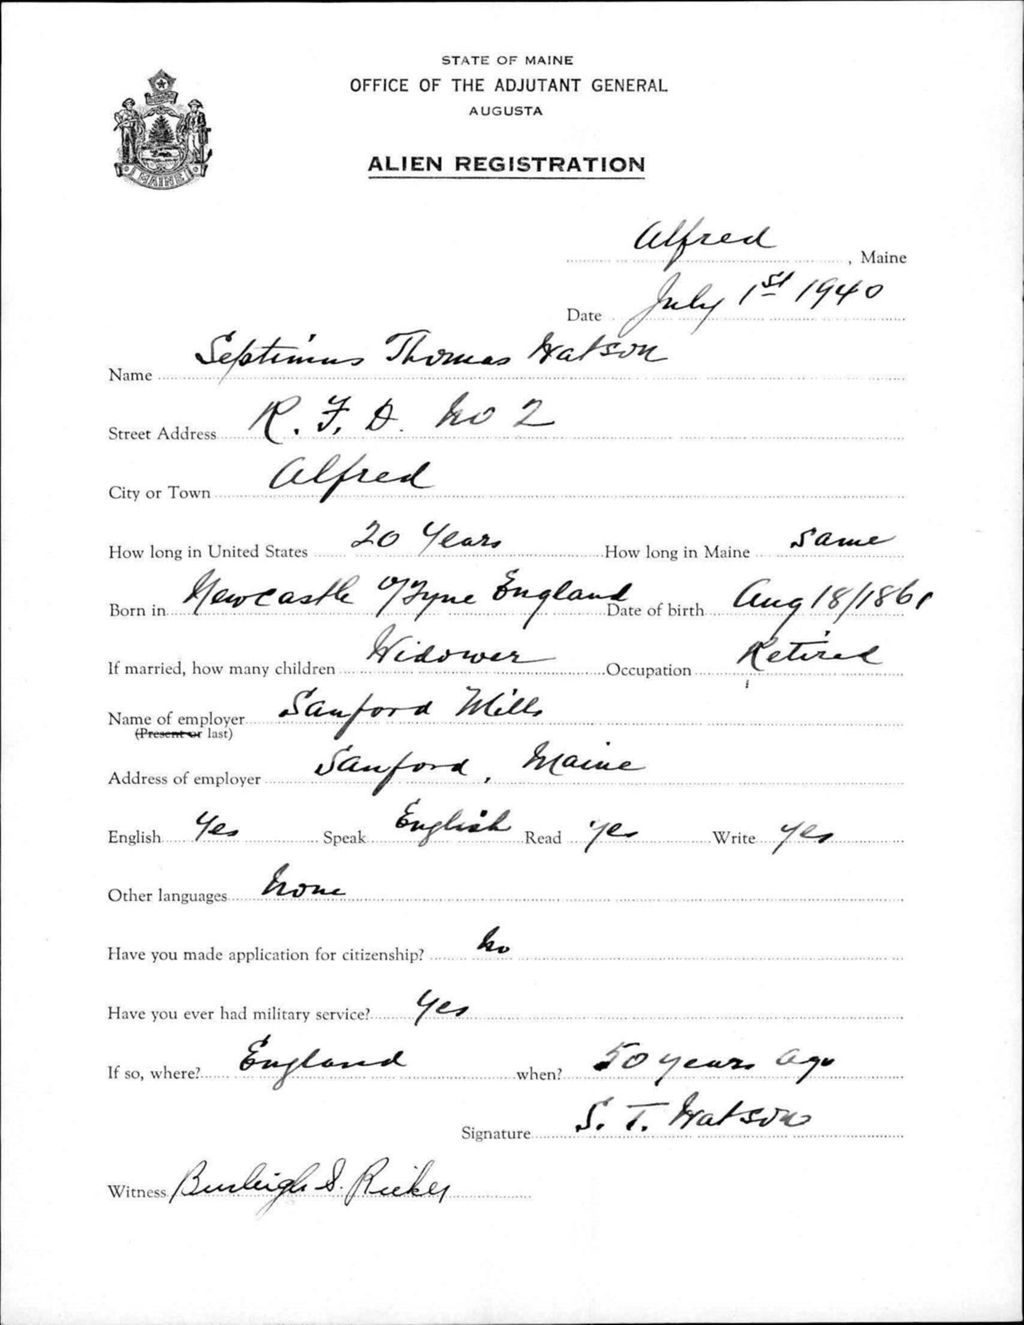 STATE OF MAINE
OFFICE OF THE ADJUTANT GENERAL
AUGUSTA
ALIEN REGISTRATION
MAINE
Alfred, Maine
Date July 1st 1940
Name Septimus Thomas Watson
Street Address R. F. D. No 2
City or Town Alfred
How long in United States 20 Years How long in Maine Same
Born in Newcastle o/Tyne England Date of birth Aug 18/1861
If married, how many children Widower Occupation Retired
Name of employer Sanford Mills
(Present or last)
Address of employer Sanford, Maine
English Yes Speak English Read Yes Write Yes
Other languages None
Have you made application for citizenship? No
Have you ever had military service? Yes
If so, where? England when? 50 years ago
Signature S. T. Watson
Witness Burleigh S. Ricker